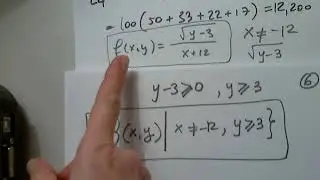 = 100 (50 + 33 + 22 + 17) = 12,200
f(x,y) = √(y-3) / (x+12)   x ≠ -12
√(y-3)
6
y-3 ⩾ 0 , y ⩾ 3
{(x,y) | x ≠ -12, y ⩾ 3}